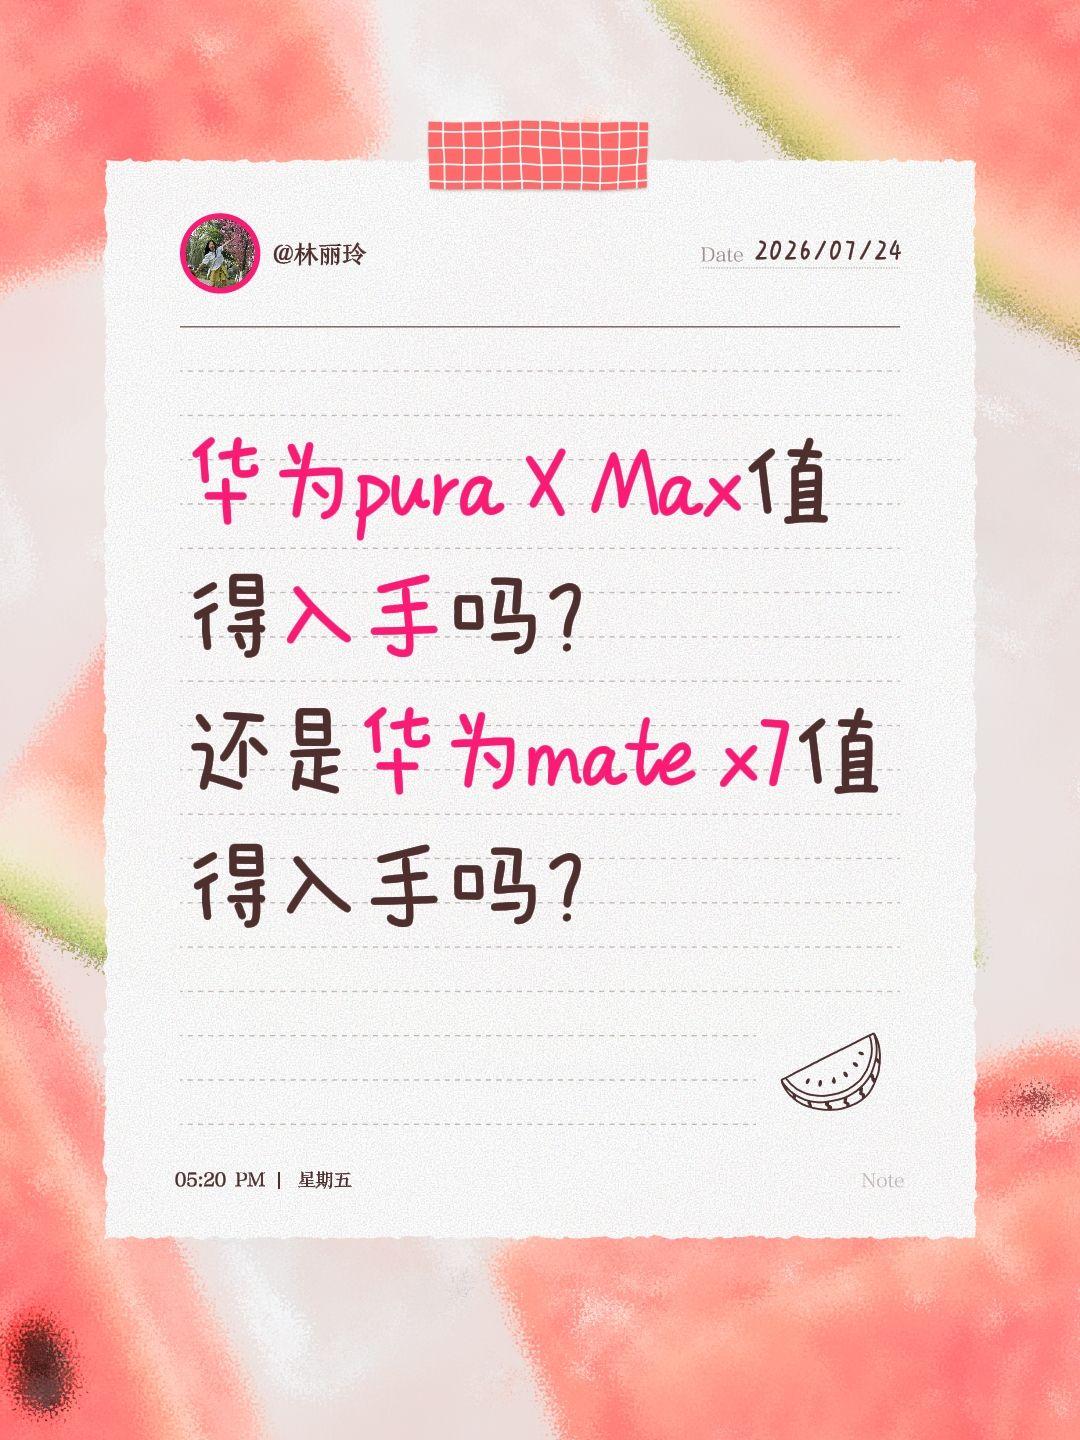 @林丽玲
Date 2026/07/24
华为pura X Max值
得入手吗?
还是华为mate x7值
得入手吗?
05:20 PM | 星期五
Note